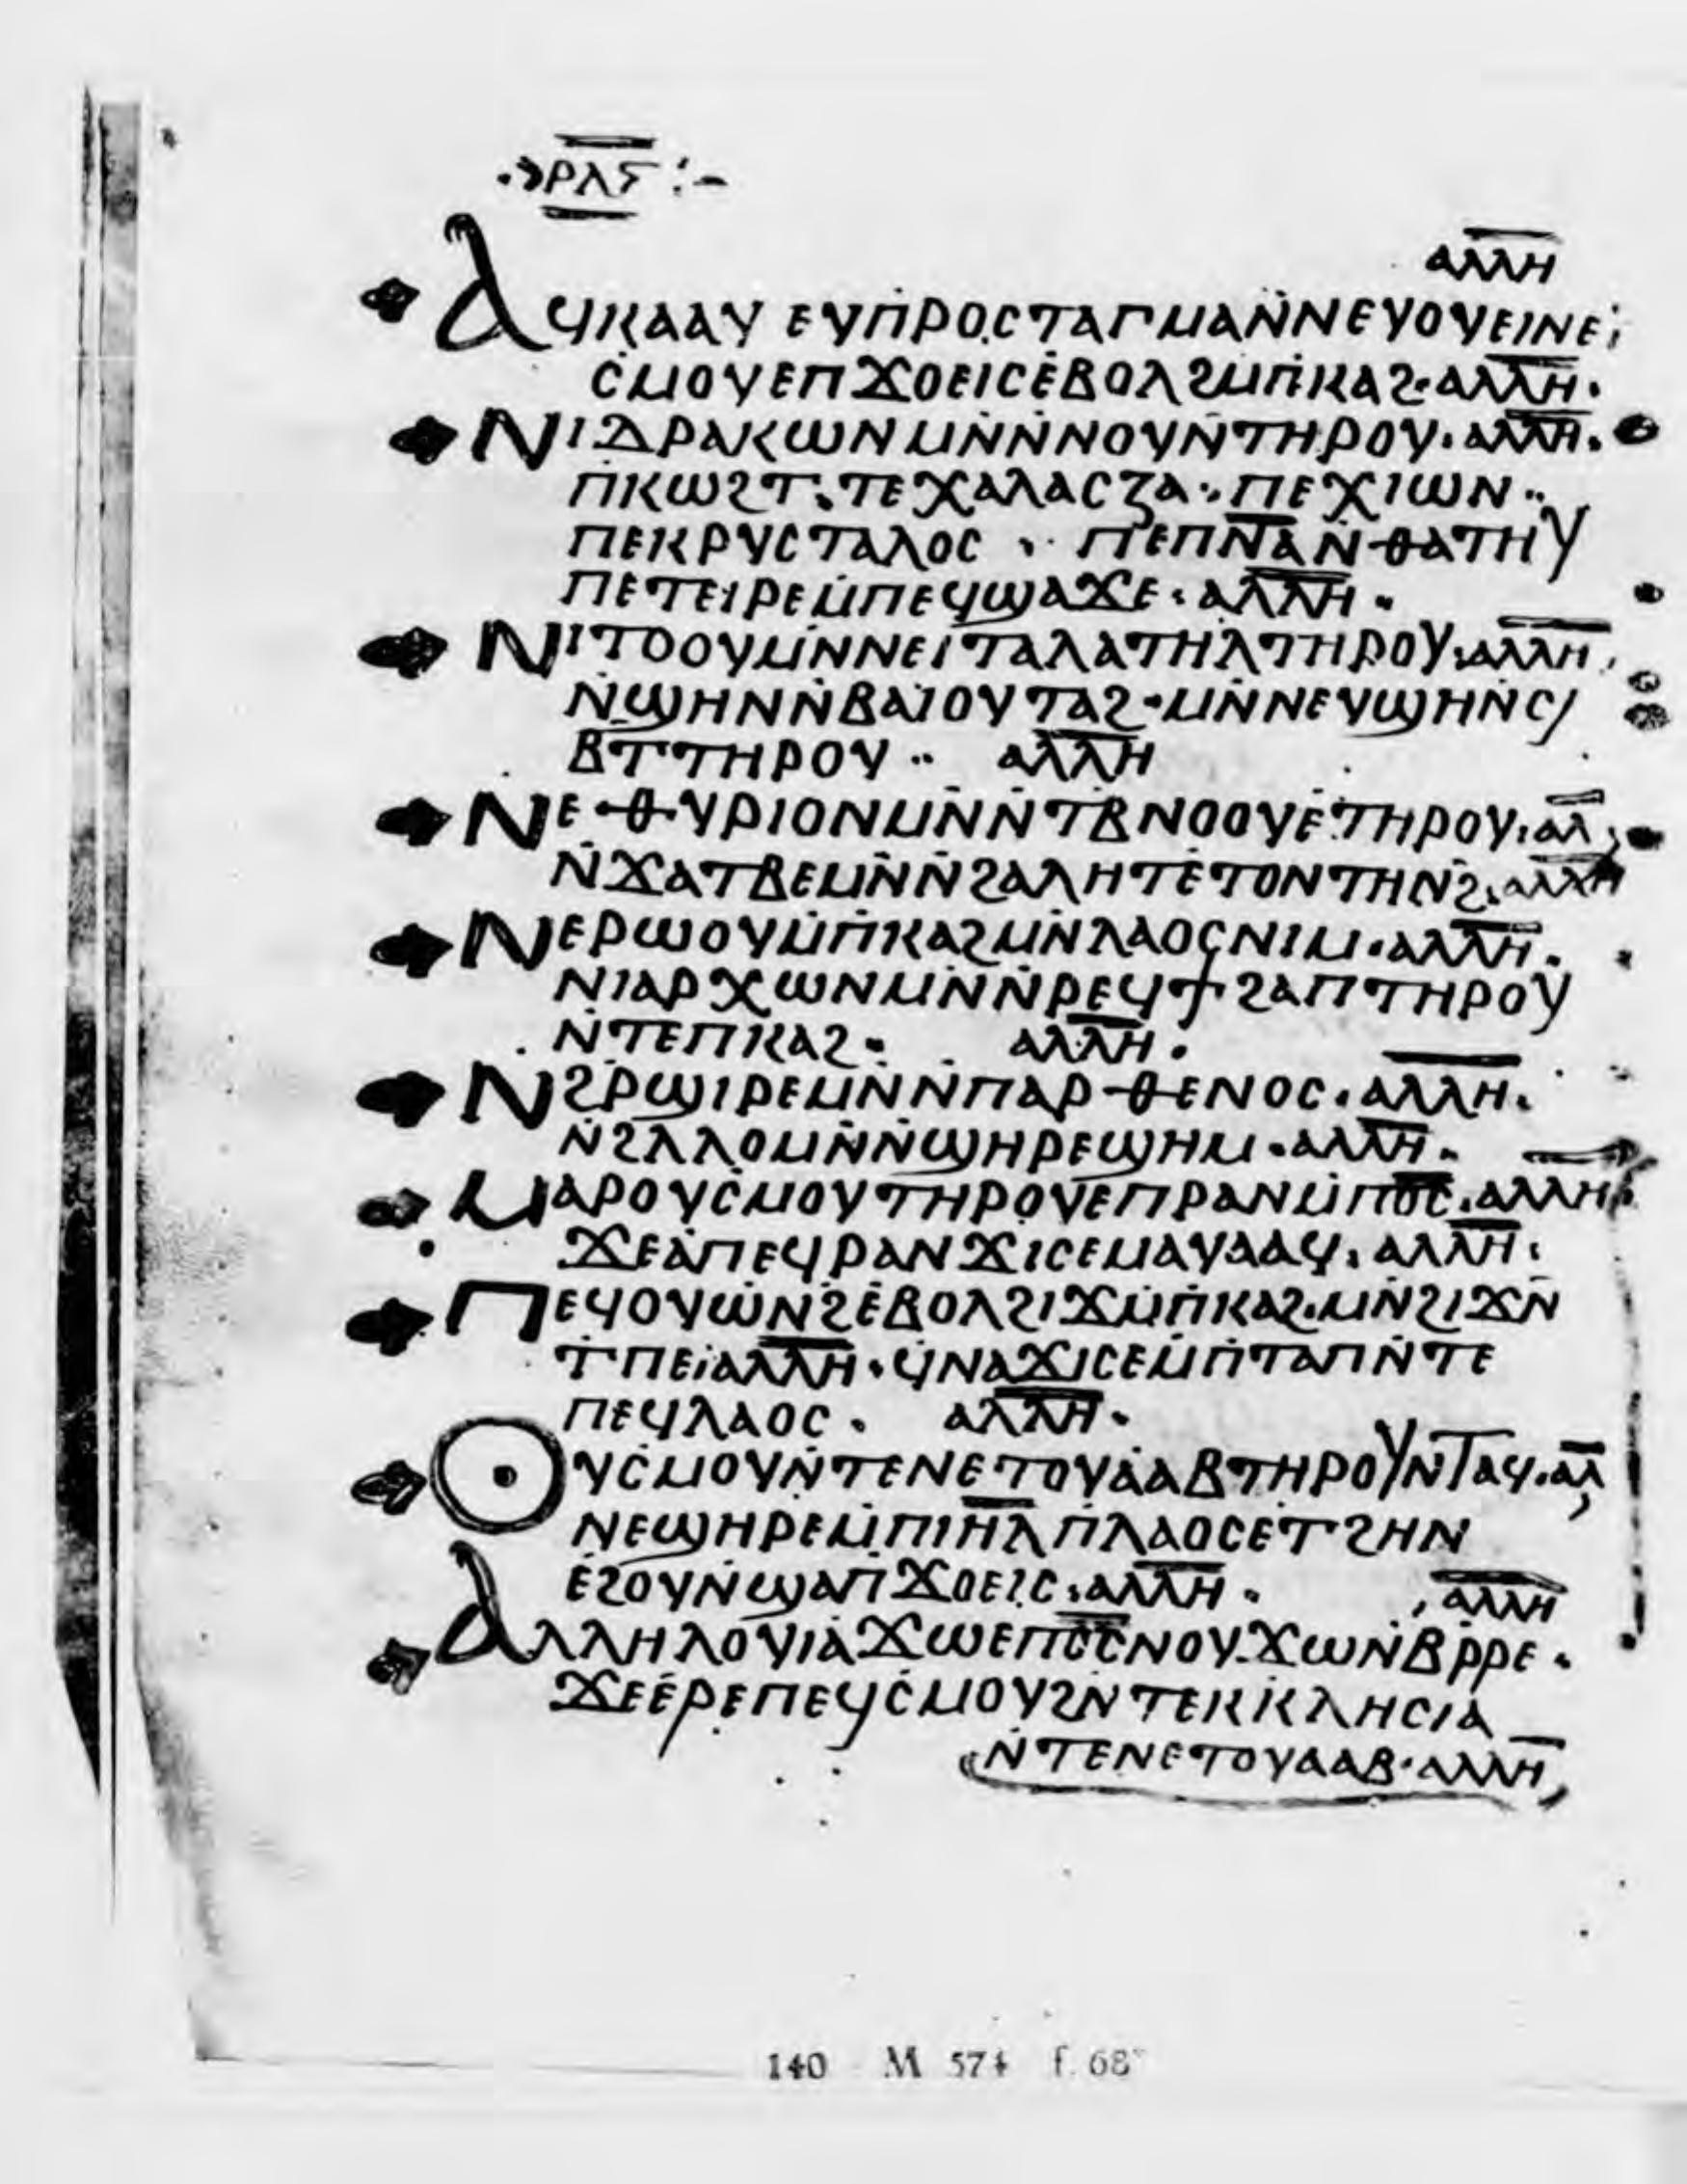 ⲣⲗⲋ
ⲁⲗⲗⲏ
ⲁϥⲕⲁⲁⲩ ⲉⲩⲡⲣⲟⲥⲧⲁⲅⲙⲁⲛ̇ⲛⲉⲩⲟⲩⲉⲓⲛⲉ
ⲥⲙⲟⲩⲉⲡϫⲟⲉⲓⲥⲉⲃⲟⲗϩⲙ̇ⲡ̇ⲕⲁϩ·ⲁⲗⲗⲏ·
ⲛⲓⲇⲣⲁⲕⲱⲛⲙⲛ̇ⲛ̇ⲛⲟⲩⲛ̇ⲧⲏⲣⲟⲩ·ⲁⲗⲗⲏ·
ⲡⲕⲱϩⲧ·ⲧⲉⲭⲁⲗⲁⲥⲍⲁ·ⲡⲉⲭⲓⲱⲛ··
ⲡⲉⲕⲣⲩⲥⲧⲁⲗⲟⲥ · ⲡⲉⲡⲛ̅ⲁ̅ⲛ̇ϩⲁⲧⲏⲩ
ⲡⲉⲧⲉⲓⲣⲉⲙ̇ⲡⲉϥϣⲁϫⲉ·ⲁⲗⲗⲏ·
ⲛⲓⲧⲟⲟⲩⲙⲛ̇ⲛⲉⲓⲧⲁⲗⲁⲧⲏⲗⲧⲏⲣⲟⲩ·ⲁⲗⲗⲏ·
ⲛ̇ϣⲏⲛⲛ̇ⲃⲁⲓⲟⲩⲧⲁϩ·ⲙⲛ̇ⲛⲉⲩϣⲏⲛ̇ⲥⲓ
ⲃⲧⲧⲏⲣⲟⲩ·· ⲁⲗⲗⲏ
ⲛⲉⲑⲩⲣⲓⲟⲛⲙⲛ̇ⲛ̇ⲧⲃⲛⲟⲟⲩⲉⲧⲏⲣⲟⲩ·ⲁⲗ
ⲛ̇ϫⲁⲧⲃⲉⲙⲛ̇ⲛ̇ϩⲁⲗⲏⲧⲉⲧⲟⲛⲧⲏⲛϩ·ⲁⲗⲗⲏ
ⲛⲉⲣⲱⲟⲩⲙ̇ⲡ̇ⲕⲁϩⲙⲛ̇ⲗⲁⲟⲥⲛⲓⲙ·ⲁⲗⲗⲏ·
ⲛⲓⲁⲣⲭⲱⲛⲙⲛ̇ⲛ̇ⲣⲉϥϯϩⲁⲡⲧⲏⲣⲟⲩ
ⲛ̇ⲧⲉⲡⲕⲁϩ· ⲁⲗⲗⲏ·
ⲛ̇ϩⲣϣⲓⲣⲉⲙⲛ̇ⲛ̇ⲡⲁⲣⲑⲉⲛⲟⲥ·ⲁⲗⲗⲏ·
ⲛ̇ϩⲗⲗⲟⲙⲛ̇ⲛ̇ϣⲏⲣⲉϣⲏⲙ·ⲁⲗⲗⲏ·
ⲙⲁⲣⲟⲩⲥⲙⲟⲩⲧⲏⲣⲟⲩⲉⲡⲣⲁⲛⲙ̇ⲡⲟ̅ⲥ̅·ⲁⲗⲗⲏ
ϫⲉⲁⲡⲉϥⲣⲁⲛϫⲓⲥⲉⲙⲁⲩⲁⲁϥ·ⲁⲗⲗⲏ·
ⲡⲉϥⲟⲩⲱⲛϩⲉⲃⲟⲗϩⲓϫⲙ̇ⲡ̇ⲕⲁϩ·ⲙⲛ̇ϩⲓϫⲛ̇
ⲧ̇ⲡⲉⲓⲁⲗⲗⲏ·ϥⲛⲁϫⲓⲥⲉⲙ̇ⲡ̇ⲧⲁⲡⲛ̇ⲧⲉ
ⲡⲉϥⲗⲁⲟⲥ· ⲁⲗⲗⲏ·
ⲟⲩⲥⲙⲟⲩⲛ̇ⲧⲉⲛⲉⲧⲟⲩⲁⲁⲃⲧⲏⲣⲟⲩⲛ̅ⲧⲁϥ·ⲁⲗ
ⲛⲉϣⲏⲣⲉⲙ̇ⲡⲓⲏ̅ⲗ̅ⲡⲗⲁⲟⲥⲉⲧϩⲏⲛ
ⲉϩⲟⲩⲛ̇ϣⲁⲡϫⲟⲉⲓⲥ·ⲁⲗⲗⲏ· ⲁⲗⲗⲏ
ⲁⲗⲗⲏⲗⲟⲩⲓⲁϫⲱⲉⲡⲟ̅ⲥ̅ⲛⲟⲩϫⲱⲛ̇ⲃⲣⲣⲉ·
ϫⲉⲉⲣⲉⲡⲉϥⲥⲙⲟⲩϩⲛ̇ⲧⲉⲕⲕⲗⲏⲥⲓⲁ
ⲛ̇ⲧⲉⲛⲉⲧⲟⲩⲁⲁⲃ·ⲁⲗⲗⲏ
140 M 574 f. 68ᵛ